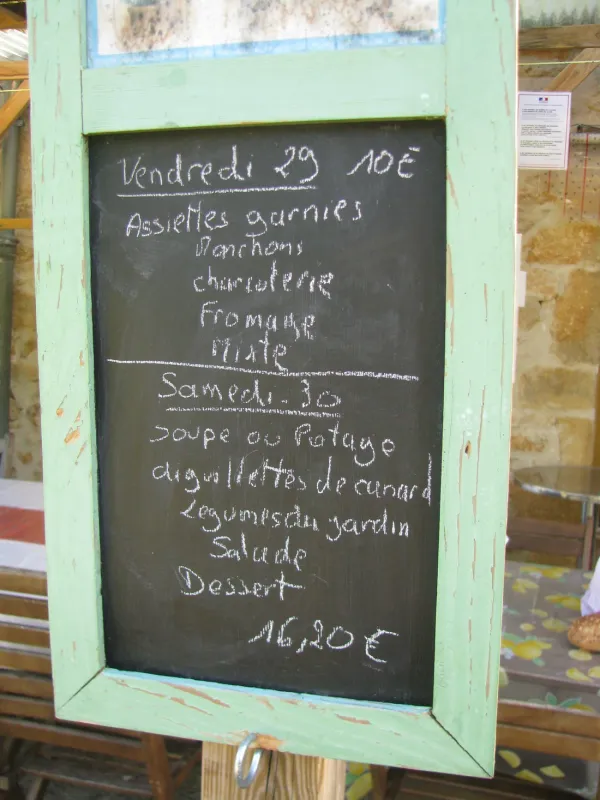 Vendredi 29 10€
Assiettes garnies
Manchons
charcuterie
Fromage
Mixte
Samedi - 30
Soupe ou Potage
aiguillettes de canard
Légumes du jardin
Salade
Dessert
16,20€